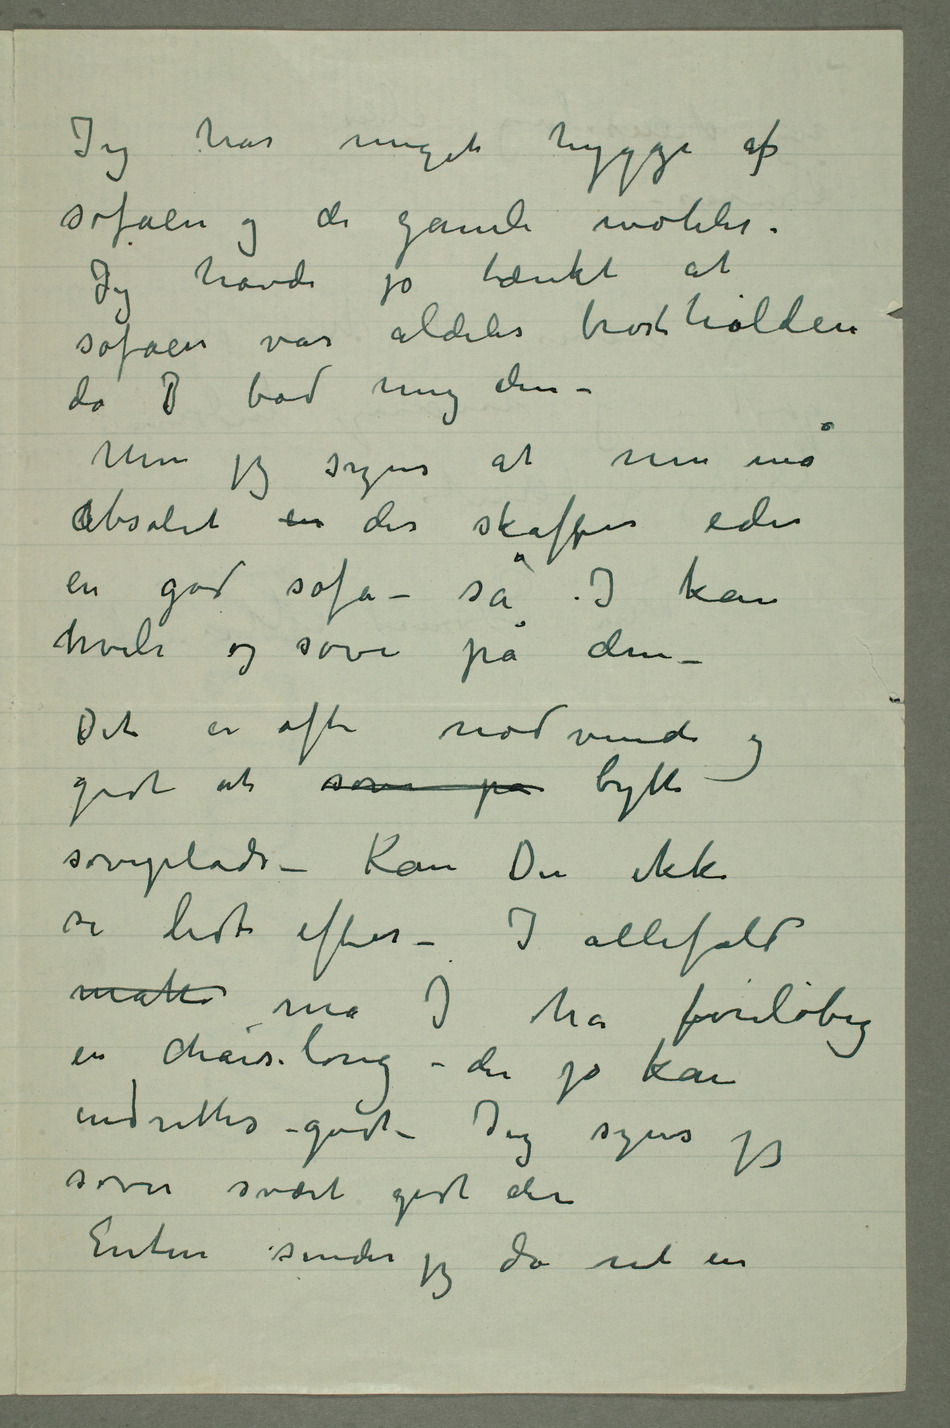 Jeg har meget hygge af
sofaen og de gamle møbler.
Jeg havde jo tænkt at
sofaen var aldeles brøstholden
da I bad mig den –
Men jeg synes at nu må
absolut der skaffes eder
en god sofa – så I kan
hvile og sove på den –
Det er ofte nødvend og
godt at sove på bytte
soveplads – Kan Du ikke
se lidt efter – I allefald
måtte må I ha foreløbig
en chaiselong – der jo kan
indrettes godt – Jeg synes jeg
sover svært godt der
Enten sender jeg da ned en